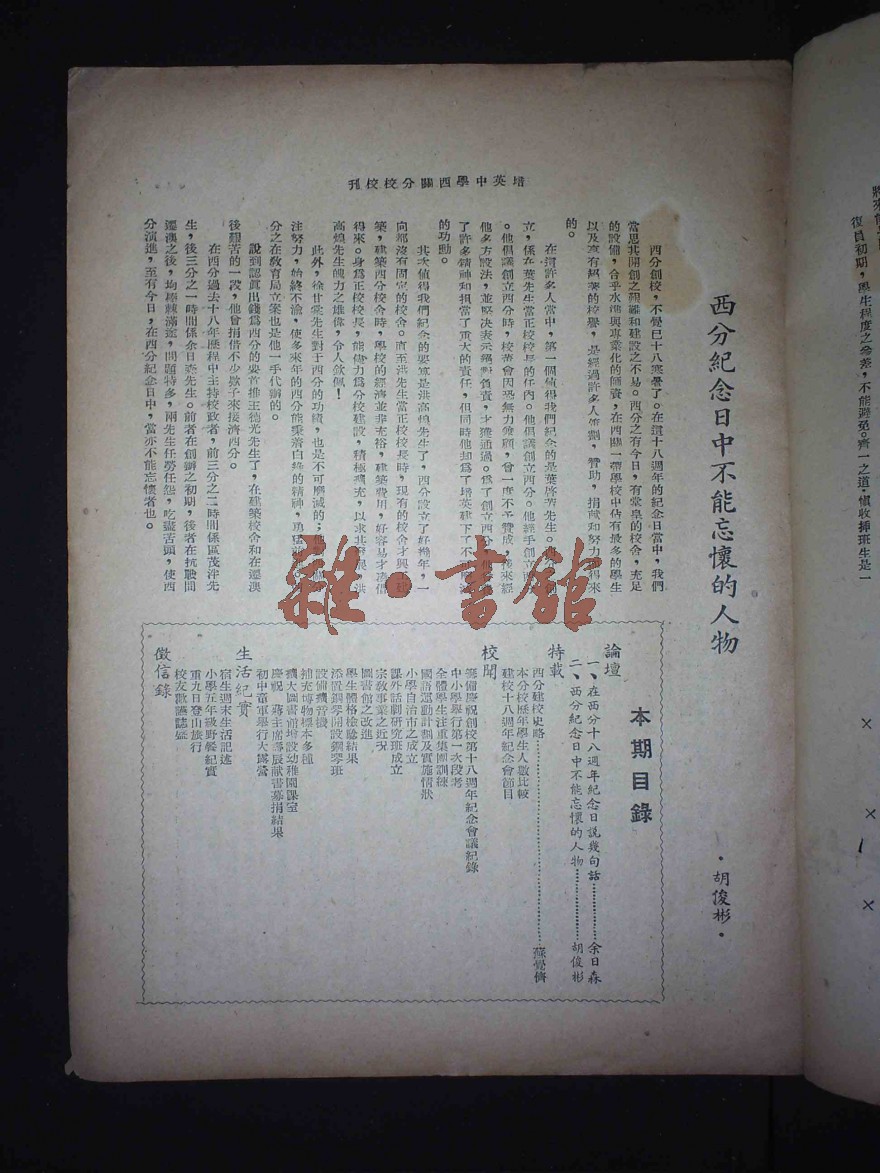 培英中學西關分校校刊
西分紀念日中不能忘懷的人物
・胡俊彬・
西分創校，不覺已十八寒暑了。在這十八週年的紀念日當中，我們
當思其開創之艱難和建設之不易。西分之有今日，有堂皇的校舍，充足
的設備，合乎水準與專業化的師資，在西關一帶學校中佔有最多的學生
以及享有
的校譽，是經過許多人策劃，贊助，捐獻和努力
得來
的。
在
許多人當中，第一個值得我們紀念的是葉啓芳先生。
立，係
葉先生當正校校長的任內。他倡議創立西分。他經手創立西
。他倡議創立西分時，校董會因恐無力發願，曾一度不予贊成，後來經
他多方設法，並堅決表示絕對負責，才獲通過。爲了創立西分，他
了許多精神和担當了重大的責任，但同時他却爲了培英建下了不
的功勳。
其次值得我們紀念的要算是洪高煌先生了，西分設立了好幾年，一
向都沒有固定的校舍。直至洪先生當正校校長時，現有的校舍才興工建
築，建築西分校舍時，學校的經濟並非充裕，建築費用，好容易才湊借
得來。身爲正校校長，能傾力爲分校建設，積極擴充，以求其發展，洪
高煌先生魄力之雄偉，令人欽佩！
此外，徐甘棠先生對于西分的功績，也是不可磨滅的；他
注努力，始終不渝，使多來年的西分能秉着白綠的精神，勇猛
分之在教育局立案也是他一手代辦的。
說到認眞出錢爲西分的要首推王德光先生了，在建築校舍和在遷澳
後艱苦的一段，他曾捐借不少款子來接濟西分。
在西分過去十八年歷程中主持校政者，前三分之二時間係區茂泮先
生，後三分之一時間係余日森先生。前者在創辦之初期，後者在抗戰間
遷澳之後，均
棘滿途，問題特多，兩先生任勞任怨，吃盡苦頭，使西
分演進，至有今日，在西分紀念日中，當亦不能忘懷者也。
本期目錄
論壇
一、在西分十八週年紀念日說幾句話…………余日森
二、西分紀念日中不能忘懷的人物…………胡俊彬
特載
西分建校史略…………蘇覺儕
本分校歷年學生人數比較
建校十八週年紀念會節目
校聞
籌備慶祝創校第十八週年紀念會議紀錄
中小學舉行第一次段考
全體學生注重集團訓練
國語運動計劃及實施情狀
小學自治市之成立
課外話劇研究班成立
宗敎事業之近況
圖書館之改進
學生體格檢驗結果
添置鋼琴開設鋼琴班
設備擴音機
補充博物標本多種
擴大圖書館增設幼稚園課室
慶祝 蔣主席壽辰献書募捐結果
初中童軍舉行大露營
生活紀實
宿生週末生活記述
小學五年級野餐紀實
重九日登山旅行
校友歡
誌盛
徵信錄
雜・書館
復員初期，學生程度之參差，不能避免。齊一之道愼收挿班生是一
×
×
×